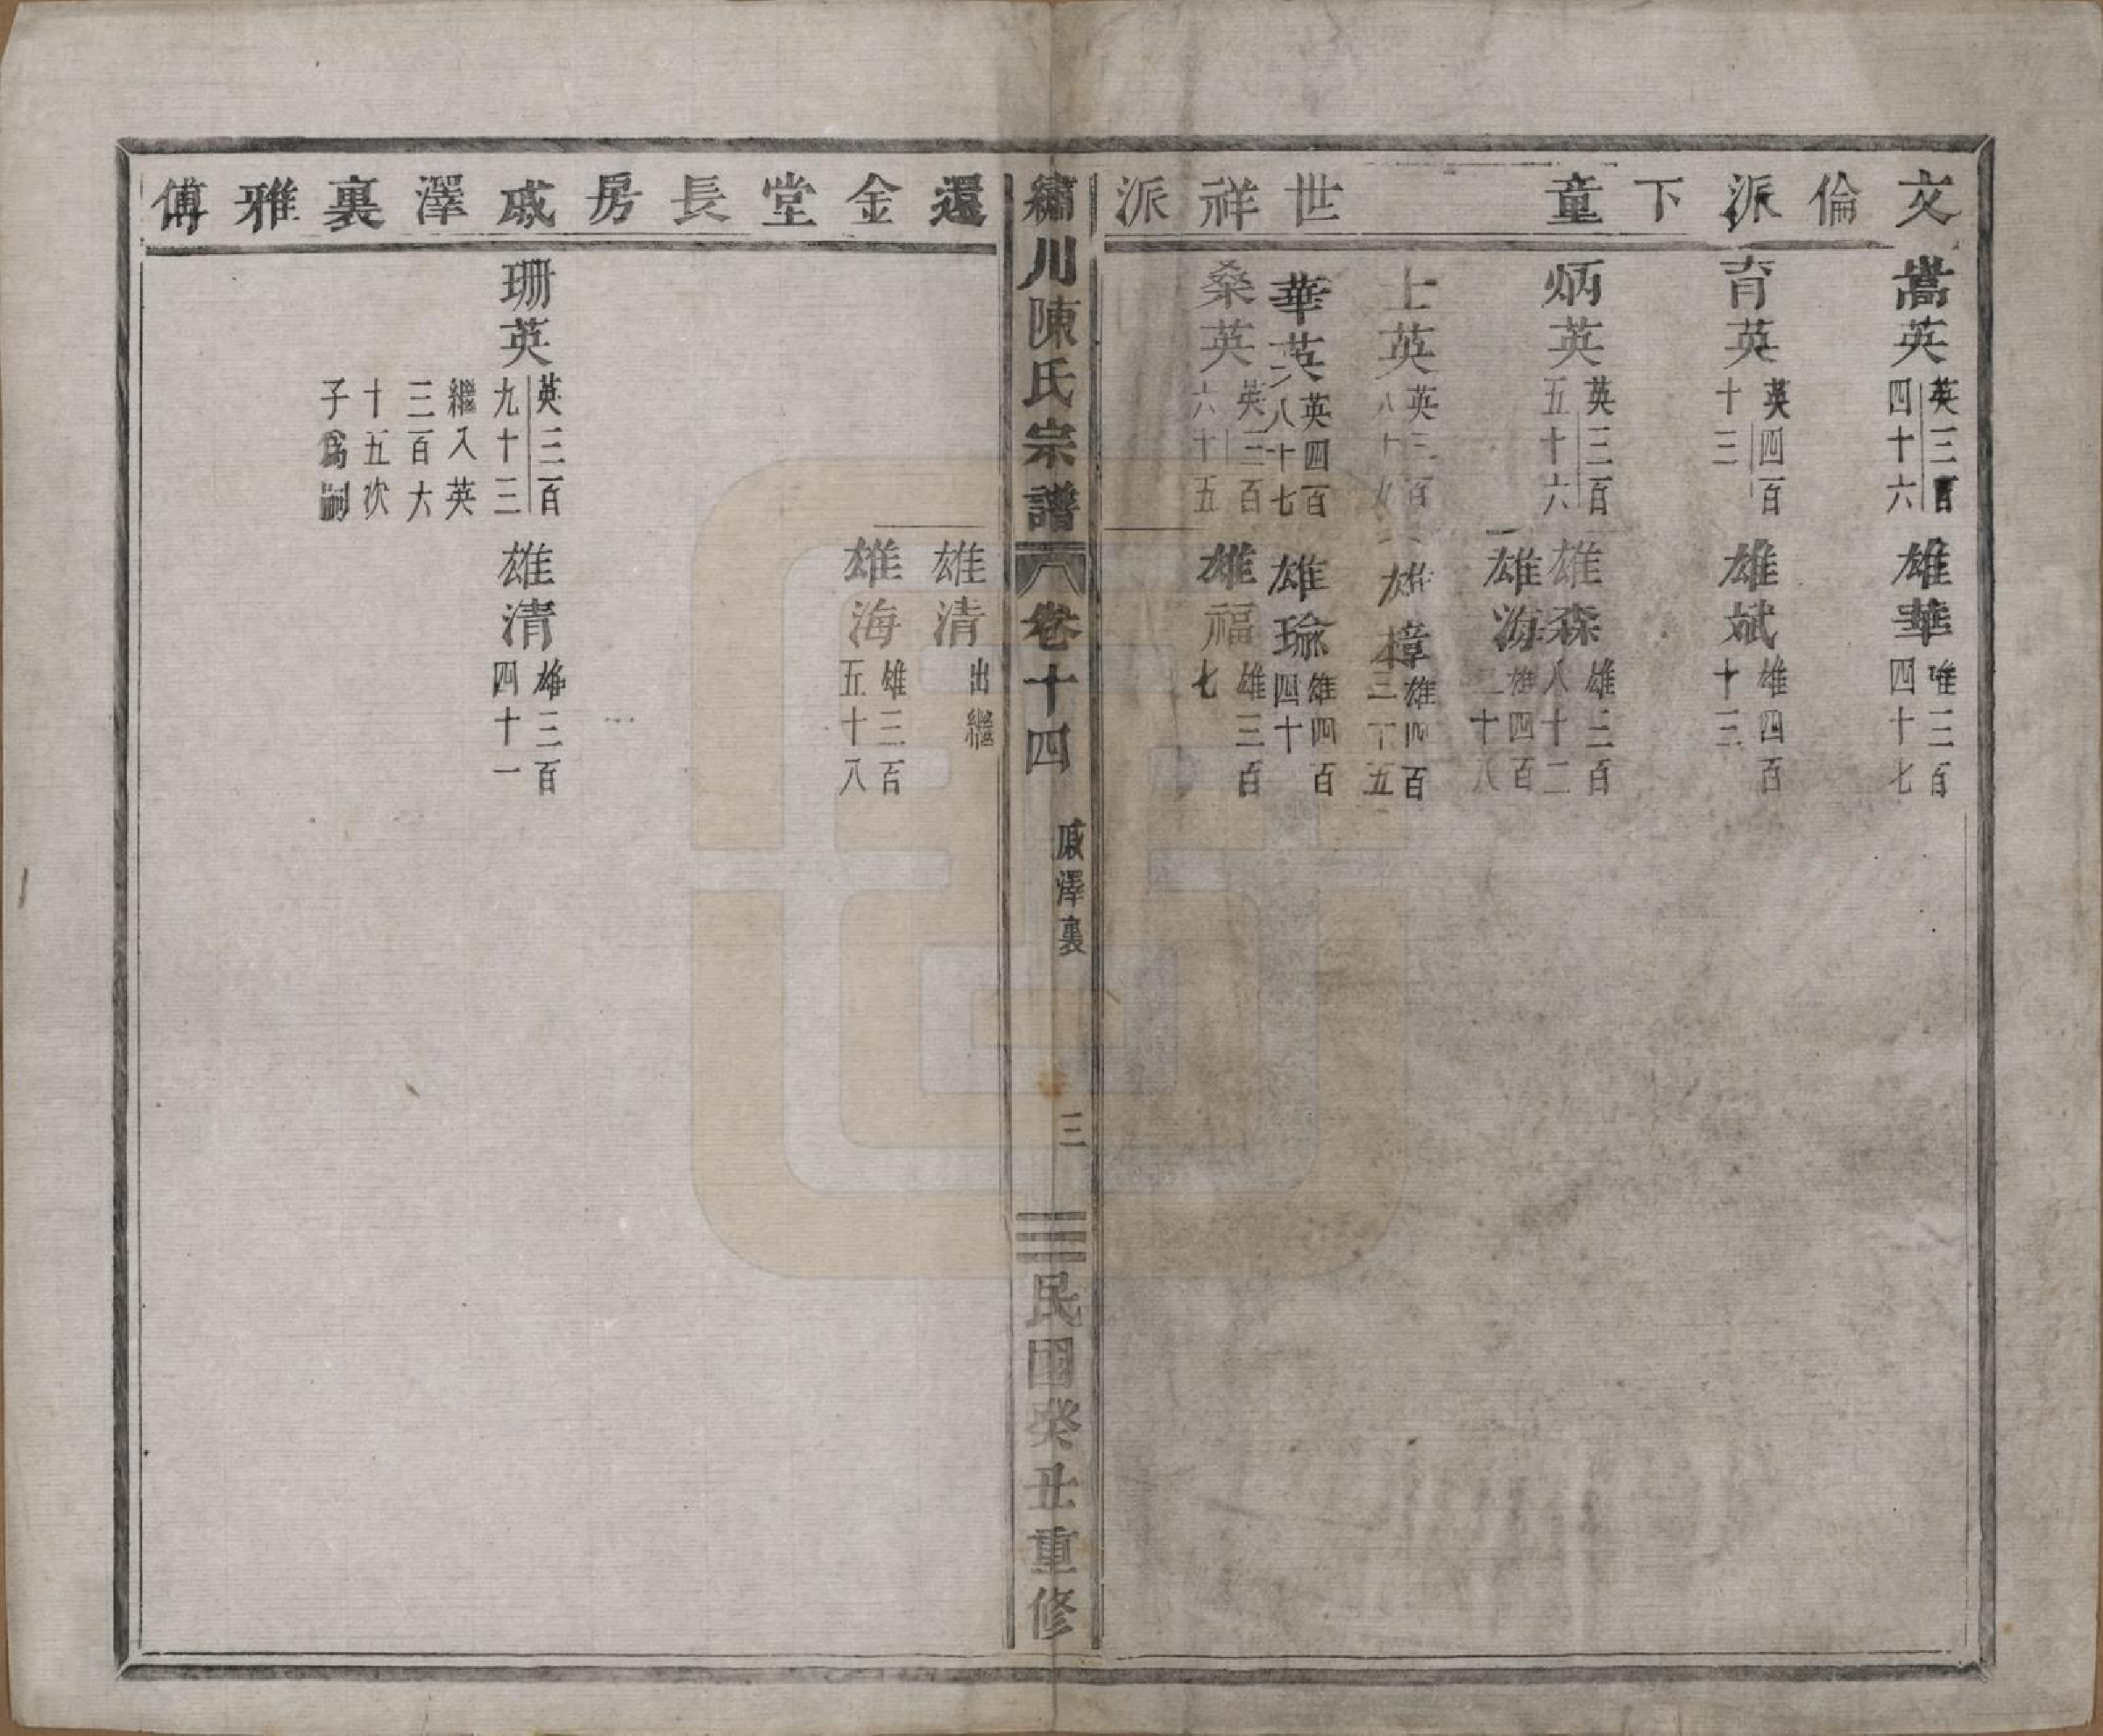 文倫派下童　世祥派
嵩英 英三百四十六 雄華 雄三百四十七
育英 英四百十三 雄斌 雄四百十三
炳英 英三百五十六 雄森 雄三百八十二
雄海 雄四百二十八
士英 英三百八十九 雄樟 雄四百三十五
華英 英四百八十七 雄瑜 雄四百四十
桑英 英三百六十五 雄福 雄三百七
繡川陳氏宗譜 卷十四 戚澤裏 三 民國癸丑重修
還金堂長房戚澤裏雅傅
雄清 出繼
雄海 雄三百五十八
珊英 英三百九十三 繼入英三百六十五次子爲嗣 雄清 雄三百四十一